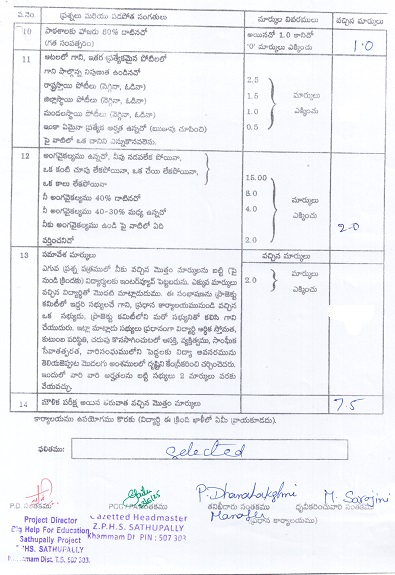 ప.నెం. ప్రశ్నలు మరియు పడపోత సంగతులు మార్కుల వివరములు వచ్చిన మార్కులు
10 పాఠశాలకు హాజరు 80% దాటినచో అయినచో 1.0 కానిచో 1.0
(గత సంవత్సరం) '0' మార్కులు ఎక్కించు
11 ఆటలలో గాని, ఇతర ప్రత్యేకమైన పోటీలలో
గాని పాల్గొన్న నిపుణుత ఉండినచో 2.5
రాష్ట్రస్థాయి పోటీలు (నెగ్గినా, ఓడినా) 1.5 మార్కులు
జిల్లాస్థాయి పోటీలు (నెగ్గినా, ఓడినా) 1.0 ఎక్కించు
మండలస్థాయి పోటీలు (నెగ్గినా, ఓడినా) 0.5
ఇంకా ఏమైనా ప్రత్యేక అర్హత ఉన్నచో (ఋజువు చూపించి)
పై వాటిలో ఒక దానిని ఎన్నుకొనవలెను.
12 అంగవైకల్యము ఉన్నచో, నీవు నడవలేక పోయినా,
ఒక కంటి చూపు లేకపోయినా, ఒక చేయి లేకపోయినా, 15.00
ఒక కాలు లేకపోయినా 8.0 మార్కులు
నీ అంగవైకల్యము 40% దాటినచో 4.0 ఎక్కించు
నీ అంగవైకల్యము 40-30% మధ్య ఉన్నచో 2.0
నీకు అంగవైకల్యము ఉండి పై వాటిలో ఏది
వర్తించనిచో 2.0
13 సమావేశ మార్కులు వచ్చిన మార్కులు
ఎగువ ప్రశ్న పత్రములో నీకు వచ్చిన మొత్తం మార్కులను బట్టి (పై 2.0 మార్కులు
నుండి క్రిందకు) విద్యార్థులకు ఇంటర్వ్యూకి పెట్టబడును. ఎక్కువ మార్కులు ఎక్కించు
వచ్చిన విద్యార్థితో మొదటి మాట్లాడుదుము. ఈ సంభాషణను ప్రాజెక్టు
కమిటీలో ఇద్దరి సభ్యులచే గాని, ప్రధాన కార్యాలయమునుండి వచ్చిన
ఒక సభ్యుడు, ప్రాజెక్టు కమిటీలోని మరో సభ్యునితో కలిసి గాని
చేయుదురు. ఇట్లా మాట్లాడు సభ్యులు ప్రధానంగా విద్యార్థి ఆర్థిక స్తోమత,
కుటుంబ పరిస్థితి, చదువు కొనసాగించుటలో ఆసక్తి, వ్యక్తిత్వము, సాంఘీక
సేవాతత్పరత, వారిసంఘములోని పెద్దలకు నిన్ను ఆవసరమును
తెలియజెప్పుట మొదలగు అంశములలో దృష్టిని కేంద్రీకరించి చర్చించెదరు.
ఇందులో వారి వారి అర్హతలను బట్టి సభ్యులు 2 మార్కులు వరకు
వేయవచ్చు.
14 మౌలిక పరీక్ష అయిన తరువాత వచ్చిన మొత్తం మార్కులు 7.5
కార్యాలయము ఉపయోగము కొరకు (విద్యార్థి ఈ క్రింది ఖాళీలో ఏమీ వ్రాయకూడదు).
ఫలితము: Selected
P. Dhanalakshmi M. Sarojini
P.D. సంతకము తనిఖీదారు సంతకము ధృవీకరించువారి సంతకము
(ప్రధాన కార్యాలయము)
Project Director
Dig Help For Education
Sathupally Project
ZPHS. SATHUPALLY
Khammam Dist. T.S. 507 303.
Gazetted Headmaster
Z.P.H.S. SATHUPALLY
Khammam Dt PIN : 507 303